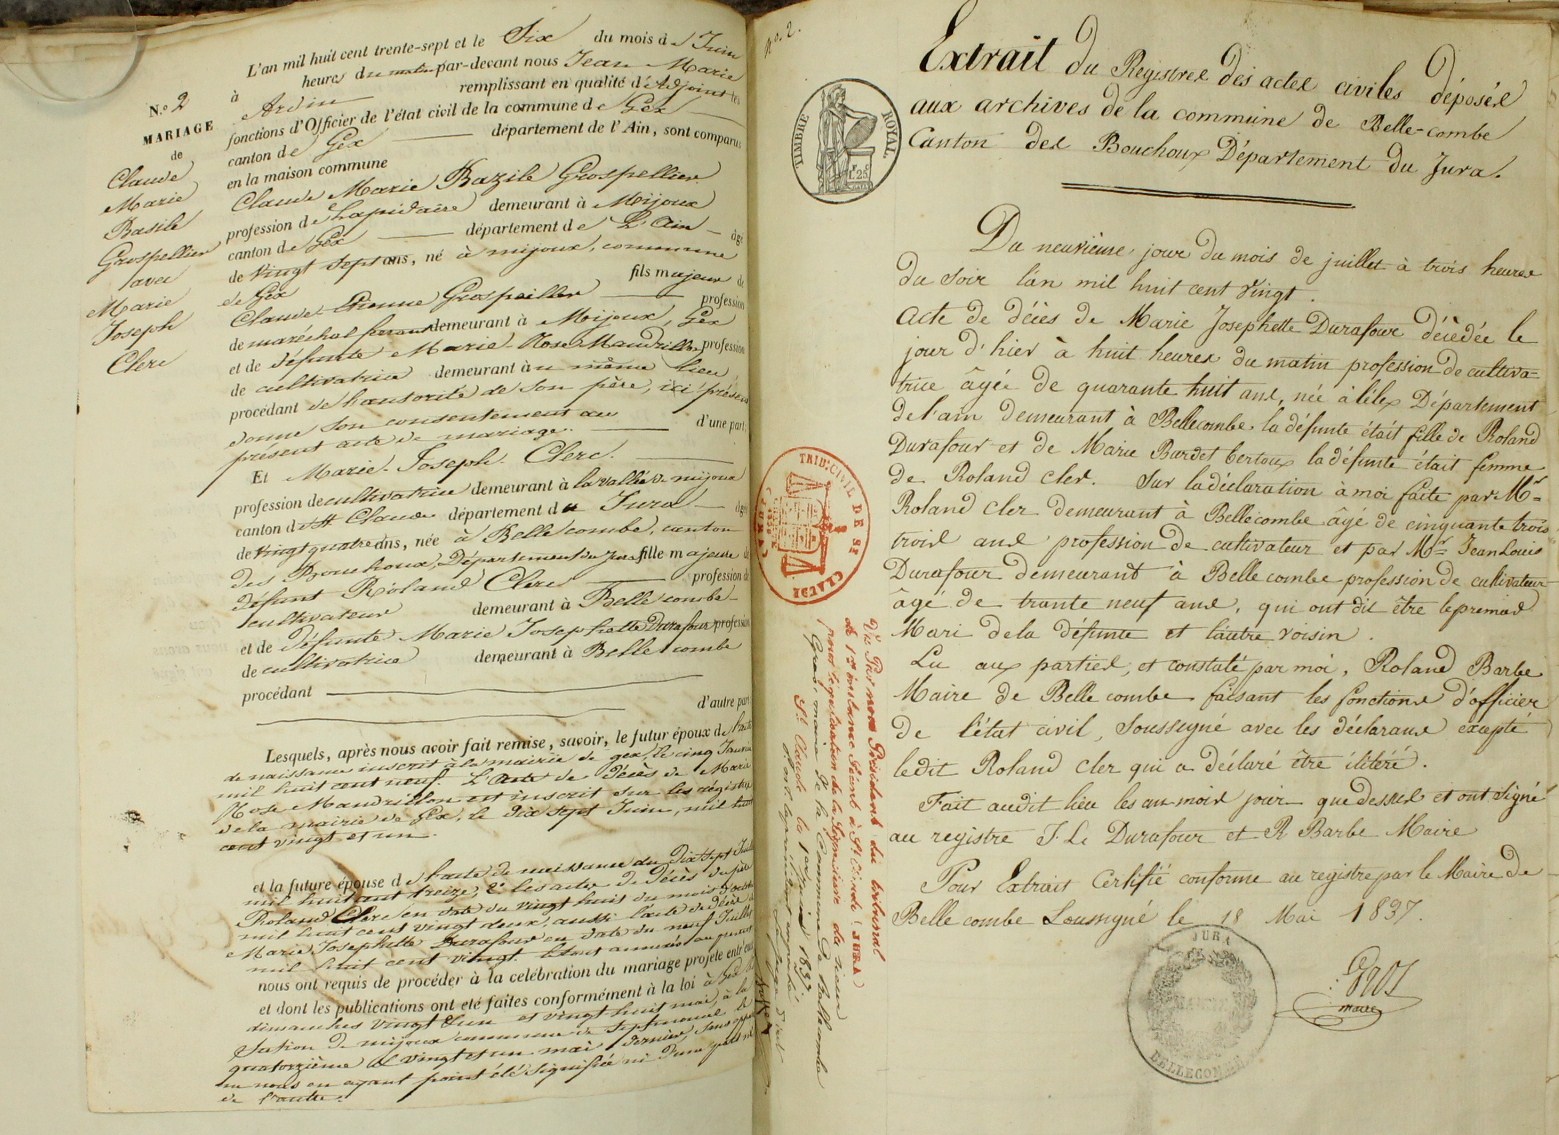 N.o 2
MARIAGE
de
Claude
Marie
Basile
Grospellier
avec
Marie
Joseph
Clerc
L'an mil huit cent trente-sept et le Six du mois de Juin
à heures du matin par-devant nous Jean Marie
Ardin remplissant en qualité d'Adjoint les
fonctions d'Officier de l'état civil de la commune de Gex
canton de Gex département de l'Ain, sont comparus
en la maison commune
Claude Marie Bazile Grospellier
profession de Lapidaire demeurant à Mijoux
canton de Gex département de L'Ain âgé
de vingt sept ans, né à mijoux, commune
de Gex fils majeur de
Claude Etienne Grospellier profession
de maréchal ferrant demeurant à Mijoux, Gex
et de défunte Marie-Rose Mandrillon profession
de cultivatrice demeurant au même lieu,
procédant de l'autorité de son père, ici présent
donne son consentement au
présent acte de mariage. d'une part,
Et Marie-Joseph Clerc.
profession de cultivatrice demeurant à la vallée de mijoux
canton de St Claude département du Jura âgée
de vingt quatre ans, née à Belle combe, canton
des Bouchoux, Département du Jura fille majeure de
défunt Roland Clerc profession de
cultivateur demeurant à Belle combe
et de défunte Marie Josephette Durafour profession
de cultivatrice demeurant à Belle combe
procédant
d'autre part
Lesquels, après nous avoir fait remise, savoir, le futur époux de l'acte
de naissance inscrit à la mairie de gex, le cinq Janvier
mil huit cent neuf. L'Acte de Décès de Marie
Rose Mandrillon est inscrit sur les régistres
de la mairie de Gex, le dix sept Juin, mil huit
cent vingt et un.
et la future épouse de l'acte de naissance du Dix sept Juillet
mil huit cent treize, & les actes de Décès du père
Roland Clerc en date du vingt huit du mois d'octobre
mil huit cent vingt deux, aussi l'acte de décès de
Marie Josephette Durafour en date du neuf Juillet
mil huit cent vingt étant annexés au présent
nous ont requis de procéder à la celébration du mariage projeté entr'eux
et dont les publications ont été faites conformément à la loi à Gex les
dimanches vingt & un et vingt huit mai, à la
station de mijoux commune de Septmoncel le
quatorzième & vingt et un mai dernier, sans opposition
ou nous en ayant point été signifiée ni d'une part ni
de l'autre.
N.o 2.
TIMBRE ROYAL
1.25
Extrait du Registrex des actex civiles déposéx
aux archives de la commune de Belle-combe
Canton dex Bouchoux Département du Jura.
Du neuvieme jour du mois de juillet à trois heurex
du soir l'an mil huit cent vingt.
Acte de décès de Marie Josephette Durafour décédée le
jour d'hier à huit heurex du matin profession de cultiva=
trice âgée de quarante huit anx, née à lélex Département
de l'ain demeurant à Bellecombe la défunte était fille de Roland
Durafour et de Marie Burdet bertoux la défunte était femme
de Roland cler. Sur la déclaration à moi faite par Mr
Roland cler demeurant à Bellecombe âgé de cinquante trois
troix anx profession de cultivateur et par Mr Jean Louis
Durafour demeurant à Belle combe profession de cultivateur
âgé de trante neuf anx, qui ont dit être le premier
Mari de la défunte et l'autre voisin.
Lu aux partiex, et constaté par moi, Roland Barbe
Maire de Belle combe faisant les fonctionx d'officier
de l'état civil, soussigné avec les déclaranx excepté
ledit Roland cler qui a déclaré être illiteré.
Fait audit lieu les an moix jour que dessux et ont signé
au registre J. L. Durafour et R Barbe Maire
Pour Extrait Certifié conforme au registre par le Maire de
Belle combe Soussigné le 18 Mai 1837.
Gros
maire
JURA
MAIRIE
BELLECOMBE
TRIB. CIVIL DE St CLAUDE (JURA)
Vu Par nous Président du tribunal
de 1re instance Séant à St Claude (JURA)
pour légalisation de la Signature du sieur
Gros, maire de la Commune de Belle combe
St Claude le 1er juin 1837